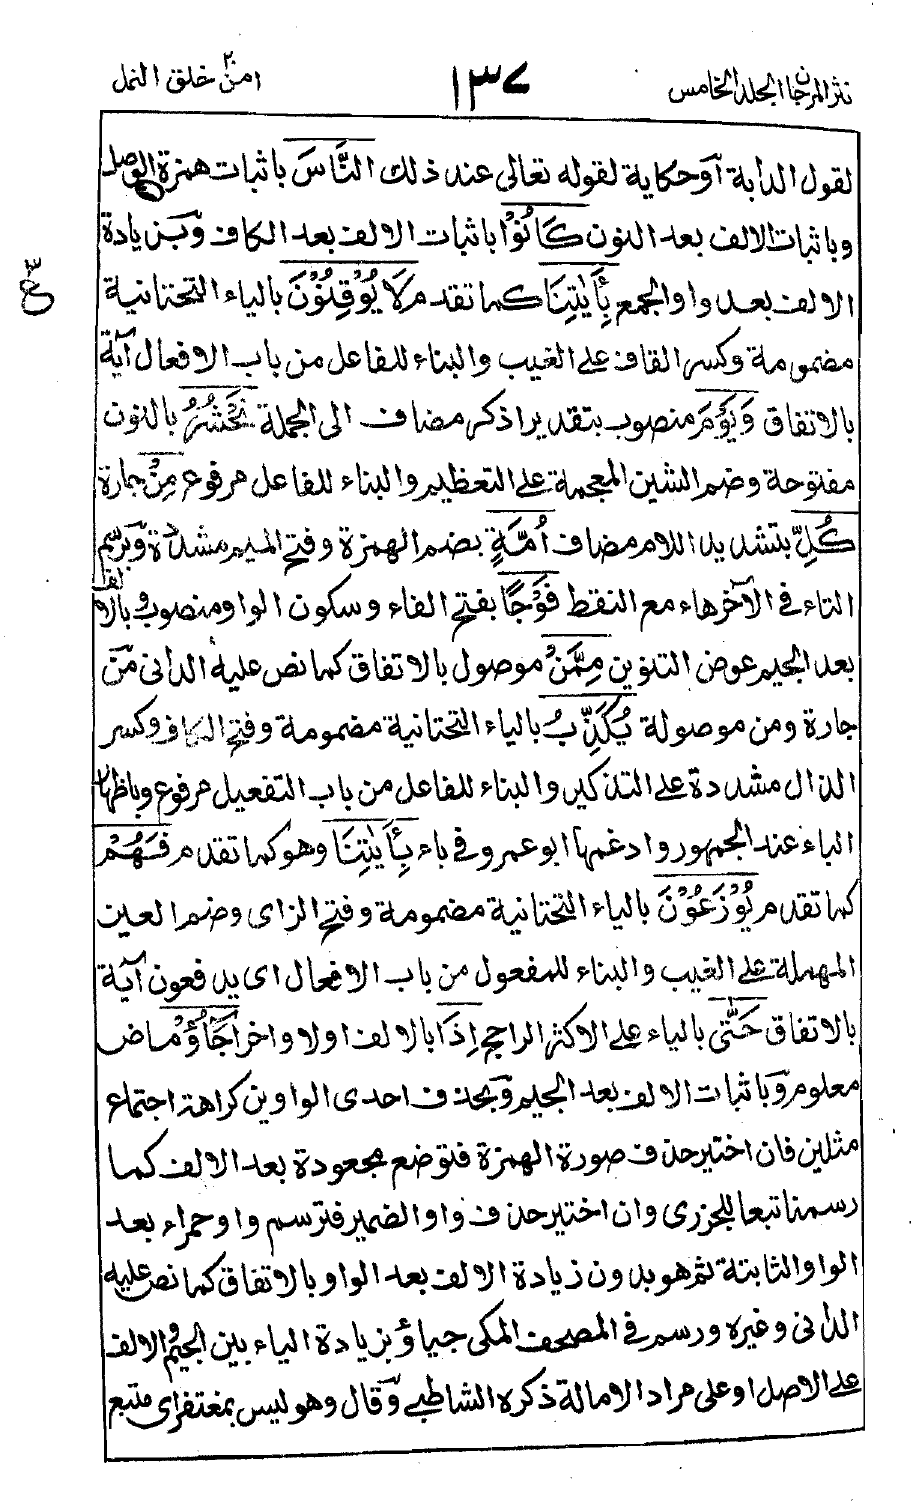 نثر المرجان الجلد الخامس ١٣٧ امن٢٠ خلق النمل
لقول الدابة اَوحكاية لقوله تعالى عند ذلك النَّاسَ باثبات همزة الوصل
وباثبات الالف بعد النون كَانُوْا باثبات الالف بعد الكاف وَبزيادة
الالف بعد واو الجمع بِاٰيٰتِنَا كما تقدم لَا يُوْقِنُوْنَ بالياء التحتانية
ع٣
مضمومة وكسر القاف على الغيب والبناء للفاعل من باب الافعال آية
بالاتفاق وَيَوْمَ منصوب بتقدير اذكر مضاف الى الجملة نَحْشُرُ بالنون
مفتوحة وضم الشين المعجمة على التعظيم والبناء للفاعل مرفوع مِنْ جارة
كُلِّ بتشديد اللام مضاف اُمَّةٍ بضم الهمزة وفتح الميم مشددة وَبرسم
التاء فى الآخر هاء مع النقط فَوْجًا بفتح الفاء وسكون الواو منصوب وبالالف
بعد الجيم عوض التنوين مِمَّنْ موصول بالاتفاق كما نص عليه الدانى مَن
جارة ومن موصولة يُكَذِّبُ بالياء التحتانية مضمومة وفتح الكاف وكسر
الذال مشددة على التذكير والبناء للفاعل من باب التفعيل مرفوع وباظهار
الباء عند الجمهور وادغمها ابو عمرو فى باء بِاٰيٰتِنَا وهو كما تقدم فَهُمْ
كما تقدم يُوْزَعُوْنَ بالياء التحتانية مضمومة وفتح الزاى وضم العين
المهملة على الغيب والبناء للمفعول من باب الافعال اى يدفعون آية
بالاتفاق حَتّٰى بالياء على الاكثر الراجح اِذَا بالالف اولا واخرا جَاؤُ ماض
معلوم وَباثبات الالف بعد الجيم وَبحذف احدى الواوين كراهة اجتماع
مثلين فان اختير حذف صورة الهمزة فتوضع مجعودة بعد الالف كما
رسمنا تبعا للجزرى وان اختير حذف واو الضمير فترسم واو حمراء بعد
الواو الثابتة ثم هو بدون زيادة الالف بعد الواو بالاتفاق كما نص عليه
الدانى وغيره ورسم فى المصحف المكى جياؤ بزيادة الياء بين الجيم والالف
على الاصل او على مراد الامالة ذكره الشاطبى وَقال وهو ليس بمغتفر اى متبع